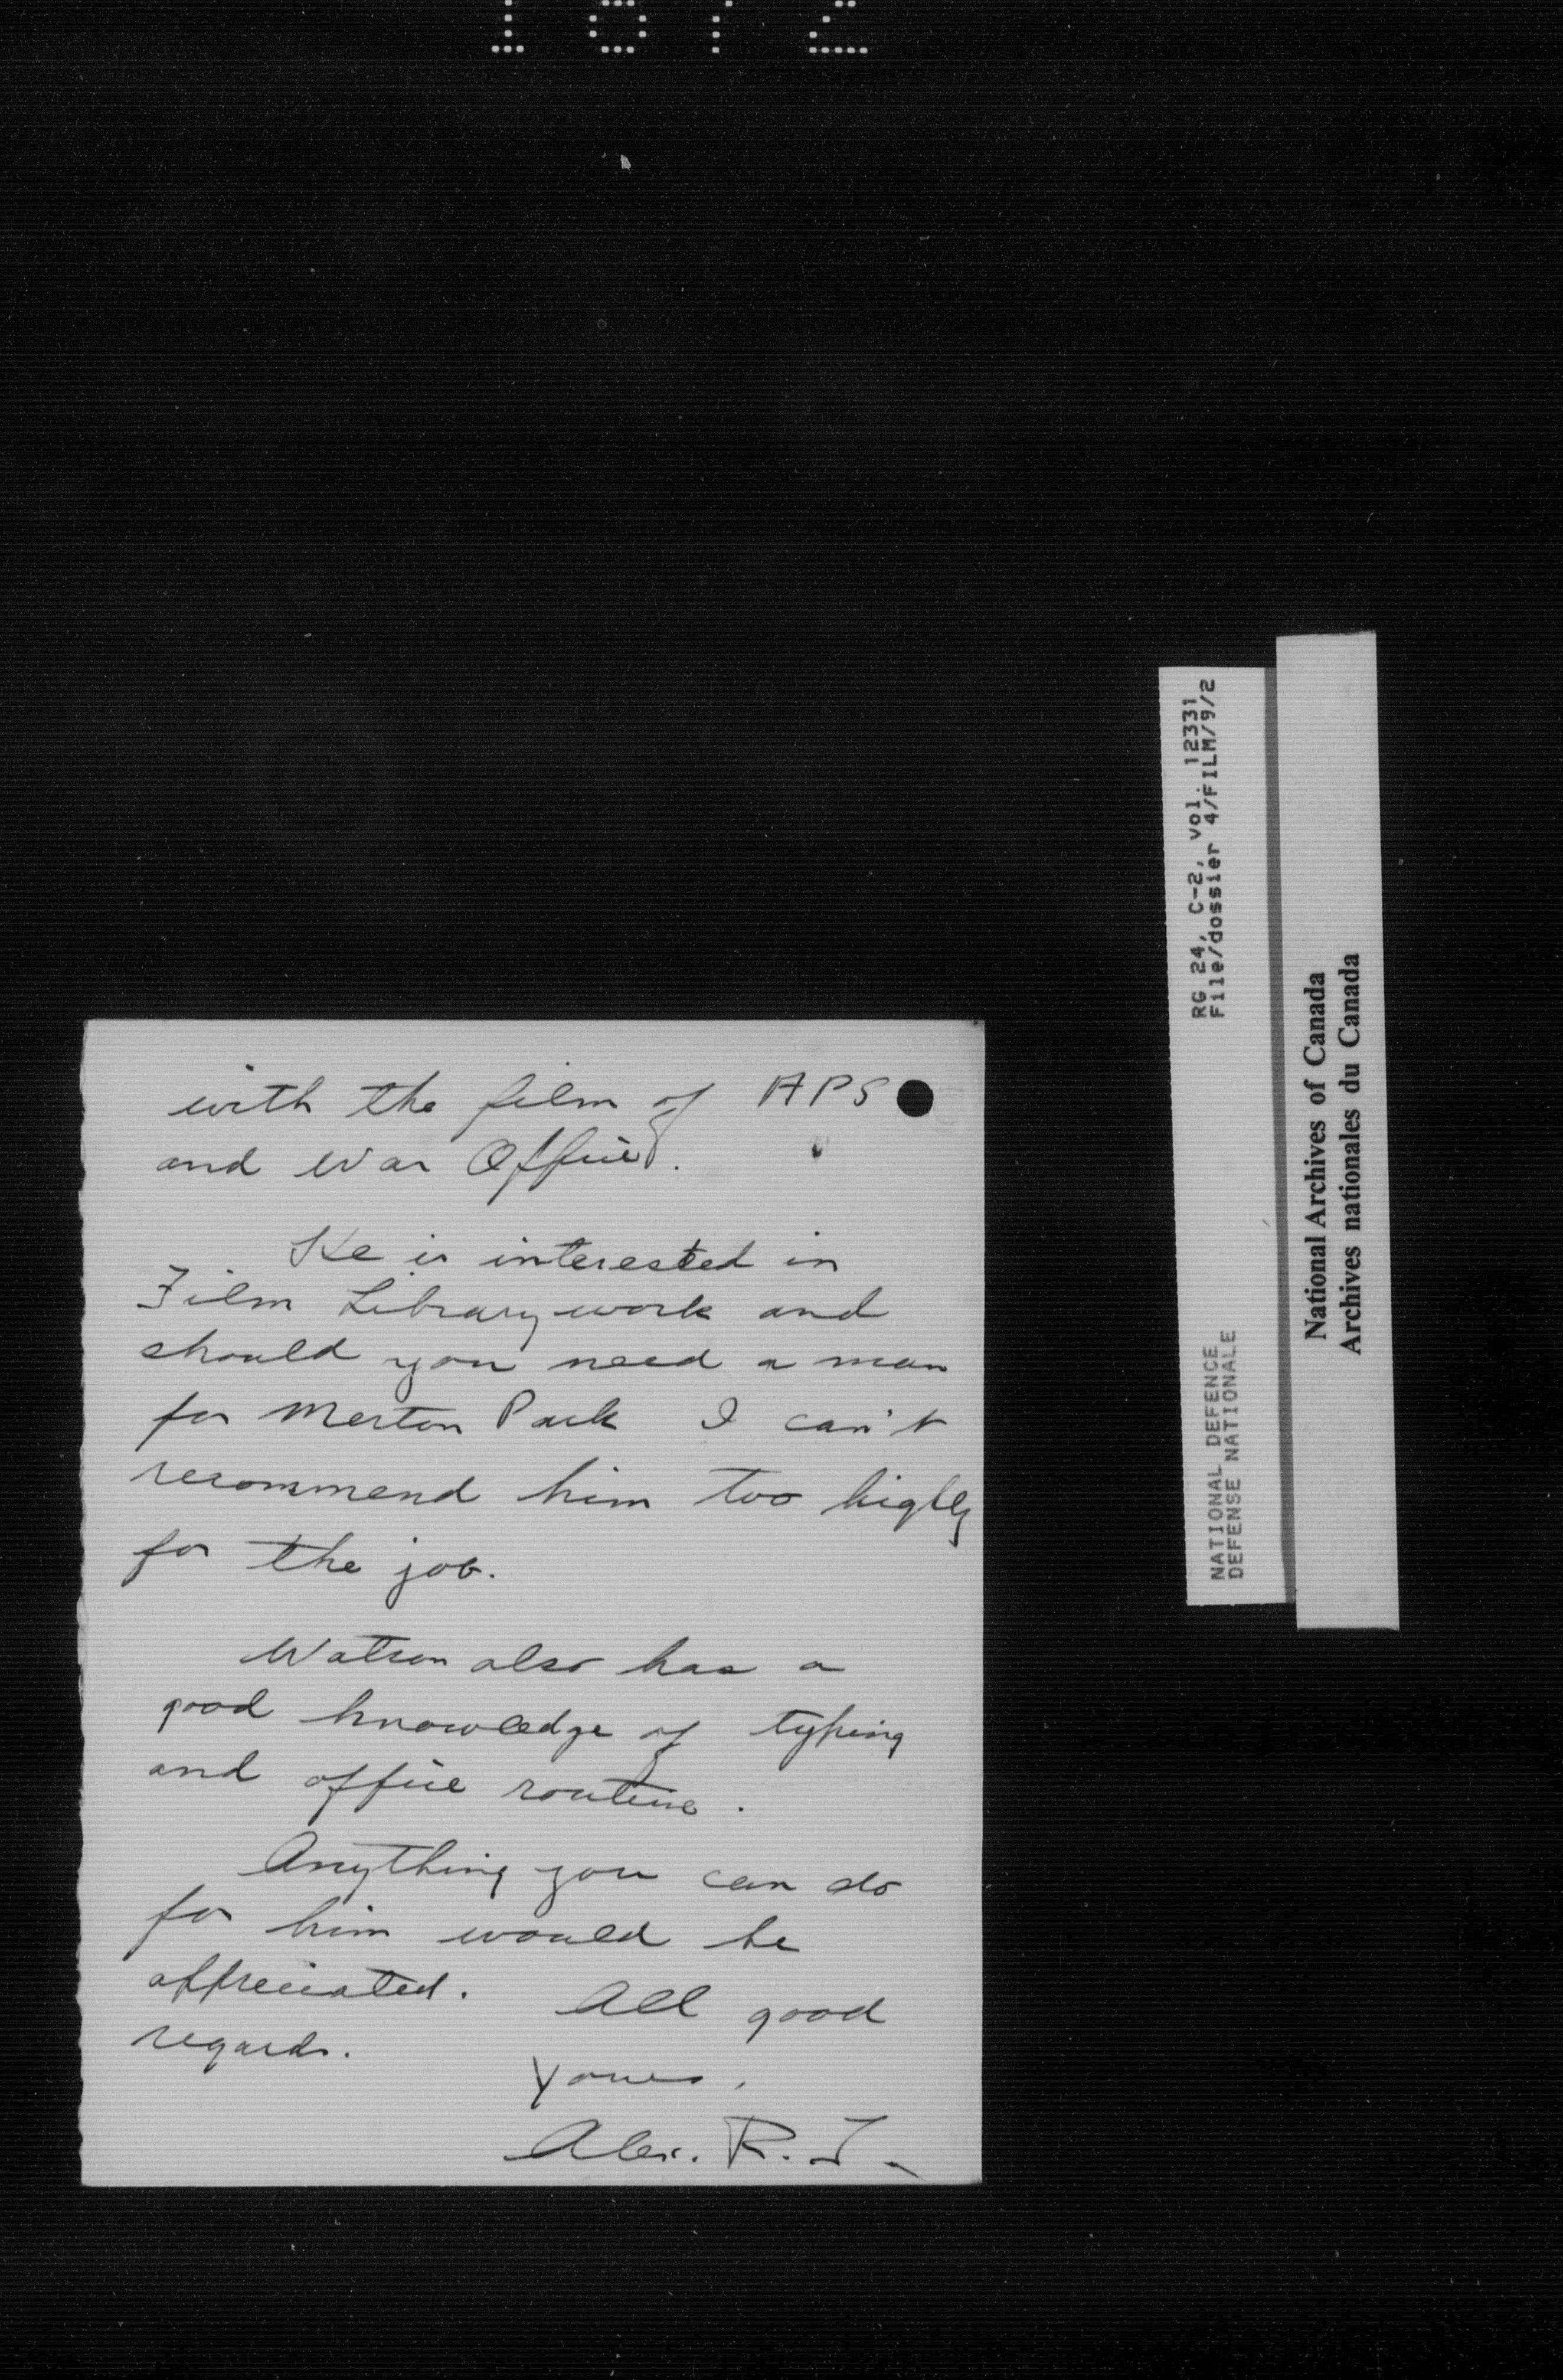 with the film of APS
and War Office.
He is interested in
Film Library work and
should you need a man
for Merton Park I can't
recommend him too highly
for the job.
Watson also has a
good knowledge of typing
and office routine.
Anything you can do
for him would be
appreciated. All good
regards.
Yours,
Alex. R. T.
RG 24, C-2, vol. 12331
File/dossier 4/FILM/9/2
NATIONAL DEFENCE
DEFENSE NATIONALE
National Archives of Canada
Archives nationales du Canada